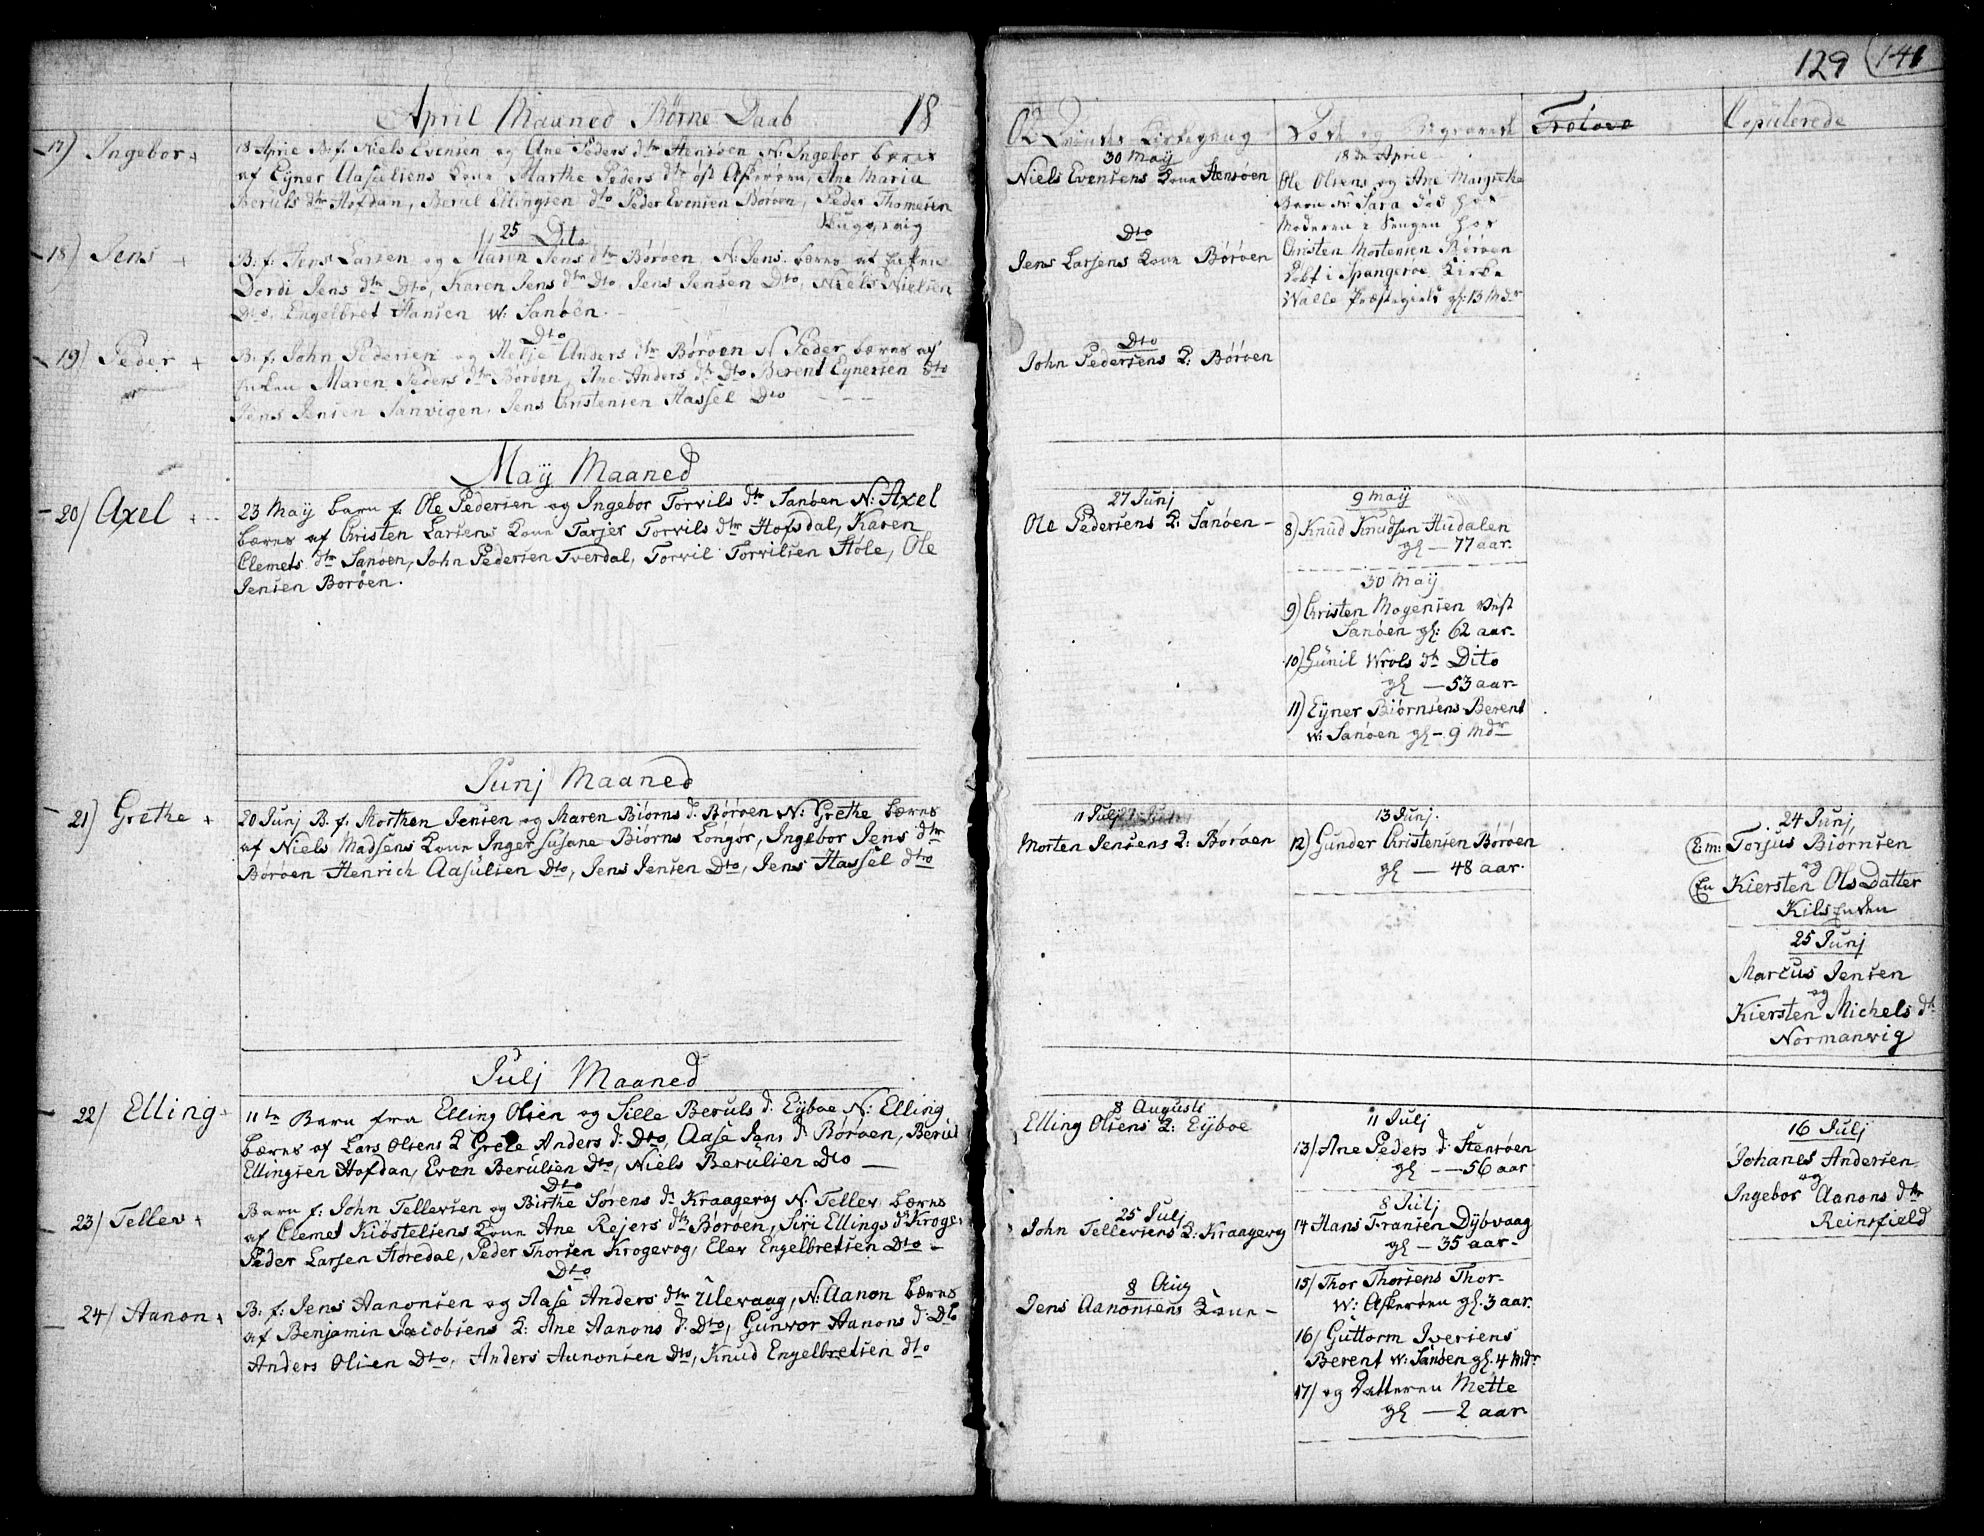 129 (141
April Maaned Børne Daab 18
17) Ingebor +
18 Aprie B. f. Niels Evensen og Ane Peders dtr Stensøen N: Ingebor bæres
af Eyner Aasulsens Kone Marthe Peders dtr øst Askerøen, Ane Maria
Beruls dtr Hofdan, Berul Ellingsen dto Peder Evensen Borøen, Peder Thomesen
25 Dto
18) Jens +
B: f: Jens Larsen og Maren Jens dtr Børøen, N: Jens. bæres af
Dordi Jens dtr Dto, Karen Jens dtr Dto, Jens Jensen Dto, Niels Nielsen
Dto, Engelbret Hansen w: Sanøen.
Dto
19) Peder +
B. f. John Pedersen og Helje Anders dtr Børøen N Peder bæres af
Maren Peders dtr Børøen, Ane Anders dtr Dto Berent Eynersen dto
Jens Jensen Sanvigen, Jens Christensen Hassel Dto
May Maaned
20) Axel +
23 May barn f. Ole Pedersen og Ingebor Torvils dtr Sanøen N: Axel
bæres af Christen Larsens Kone Tarjer Torvils dtr Hofsdal, Karen
Clemets dtr Sanøen, John Pedersen Tverdal, Torvil Torvilsen Støle, Ole
Jensen Borøen.
Junj Maaned
21) Grethe +
20 Junj B. f. Morthen Jensen og Maren Biørns d. Børøen N: Grethe bæres
af Niels Madsens Kone Inger Susane Biørns Longør, Ingebor Jens dtr
Børøen Henrich Aasulsen Dto, Jens Jensen Dto, Jens Hassel dto
Julj Maaned
22) Elling +
11te Barn fra Elling Olsen og Sille Beruls d. Eyboe N: Elling
bæres af Lars Olsens K Grete Anders d: Dto, Aase Jens d Børøen, Berul
Ellingsen Hofdan, Even Berulsen Dto, Niels Berulsen Dto
Dto
23) Tellev +
Barn f: John Tellevsen og Birthe Sørens d. Kraagevog N: Tellev bæres
af Clemet Kiøstelsens Kone Ane Rejers dtr Børøen, Siri Ellings d Kroge-
Peder Larsen Støredal, Peder Thorsen Krogevog, Elev Engelbretsen Dto
Dto
24) Aanon +
B: f: Jens Aanonsen og Aase Anders dtr Ulevaag, N: Aanon bæres
af Benjamin Jacobsens K: Ane Aanons d: Dto, Gunvor Aanons d: Dto
Anders Olsen Dto, Anders Aanonsen Dto, Knud Engelbretsen dto
02 Qvindes Kirkegang
30 May
Niels Evensens Kone Stensøen
Dto
Jens Larsens Kone Børøen
Dto
John Pedersens K: Børøen
27 Junj
Ole Pedersens K: Sanøen
11 Julj
Morten Jensens K: Børøen
8 Augusti
Elling Olsens K: Eyboe
25 Julj
John Tellevsens K: Kraagevog
8 Aug
Jens Aanonsens Kone
Døde og Begravede
18de Aprie
Ole Olsens og Ane Margrethe
Barn N: Sara død hos
Moderen i Sengen hos
Christen Mortensen Børøen
døbt i Spangeroe Kirke
Walle Præstegield gl: 13 Mdr
9 May
8) Knud Knudsen Hudalen
gl — 77 aar.
30 May
9) Christen Mogensen Vest
Sanøen gl: 62 aar
10) Gunil Wrols dtr Dito
gl — 53 aar
11) Eyner Biørnsens Berent
w: Sanøen gl - 9 Mdr
13 Junj.
12) Gunder Christensen Børøen
gl — 48 aar.
11 Julj
13) Ane Peders d. Stensøen
gl — 56 aar
8 Julj
14 Hans Fransen Dybvaag
gl — 35 aar
15) Thor Thorsens Thor
w: Askerøen gl. 3 aar.
16) Guttorm Iversens
Berent w: Sanøen gl. 4 Mdr
17) og Datteren Mette
gl — 2 aar
Trolove
Copulerede
24 Junj
E:m: Torjus Biørnsen
og
En Kiersten OlsDatter
Kilsenden
25 Junj
Marcus Jensen
og
Kiersten Michels dtr
Normanvig
16 Julj
Johanes Andersen
og
Ingebor Aanons dtr
Reinsfield